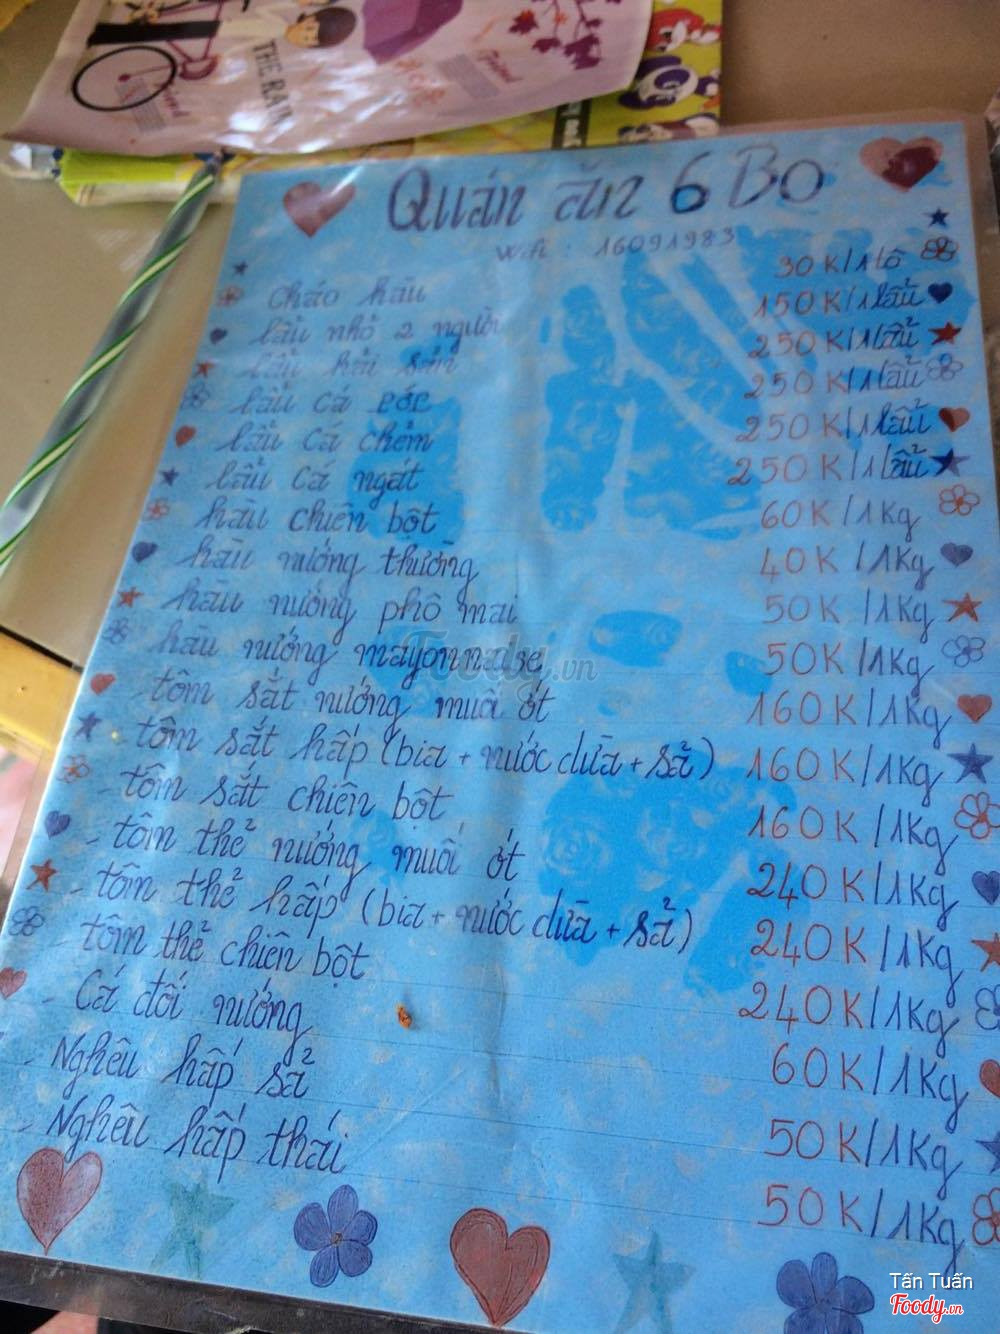 THE RAIN
Quán ăn 6 Bo
Wifi : 16091983
Cháo hàu 30 K/1 tô
lẩu nhỏ 2 người 150 K/1 lẩu
lẩu hải sản 250 K/1 lẩu
lẩu cá bớp 250 K/1 lẩu
lẩu cá chẻm 250 K/1 lẩu
lẩu cá ngát 250 K/1 lẩu
hàu chiên bột 60 K/1 Kg
hàu nướng thường 40 K/1 Kg
hàu nướng phô mai 50 K/1 Kg
hàu nướng mayonnaise 50 K/1 Kg
tôm sắt nướng muối ớt 160 K/1 Kg
tôm sắt hấp (bia + nước dừa + sả) 160 K/1 Kg
tôm sắt chiên bột 160 K/1 Kg
- tôm thẻ nướng muối ớt 240 K/1 Kg
- tôm thẻ hấp (bia + nước dừa + sả) 240 K/1 Kg
- tôm thẻ chiên bột 240 K/1 Kg
- Cá đối nướng 60 K/1 Kg
- Nghêu hấp sả 50 K/1 Kg
- Nghêu hấp thái 50 K/1 Kg
Foody.vn
Tấn Tuấn
Foody.vn